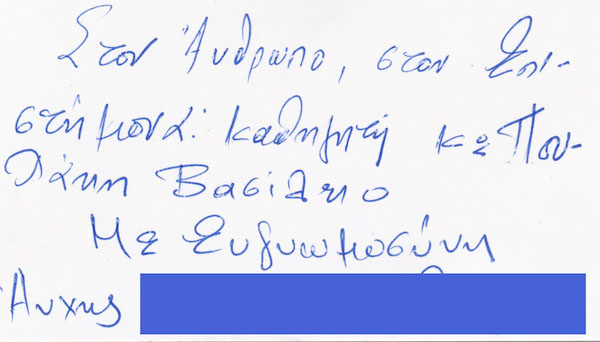 Στον Άνθρωπο, στον Επι-
στήμονα: καθηγητή κε Που-
λάκη Βασίλειο
Με Ευγνωμοσύνη